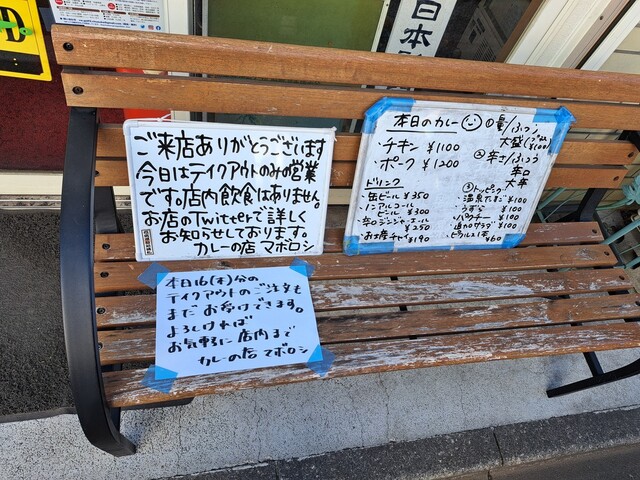 日本
ご来店ありがとうございます
今日はテイクアウトのみの営業
です。店内飲食はありません。
お店のTwitterで詳しく
お知らせしております。
カレーの店 マボロシ
本日のカレー
・チキン ¥1100
・ポーク ¥1200
ドリンク
・缶ビール ¥350
・ノンアルコール
ビール ¥300
・辛口ジンジャーエール
¥250
・お土産チャイ ¥190
①量/ふつう
大盛(プラス¥100)
②辛さ/ふつう
辛口
大辛
③トッピング
・温泉たまご ¥100
・うずら ¥100
・パクチー ¥100
・追カツサラダ ¥100
・ピクルス1本 ¥60
本日16(木)分の
テイクアウトのご注文も
まだお受けできます。
よろしければ
お気軽に店内まで
カレーの店 マボロシ